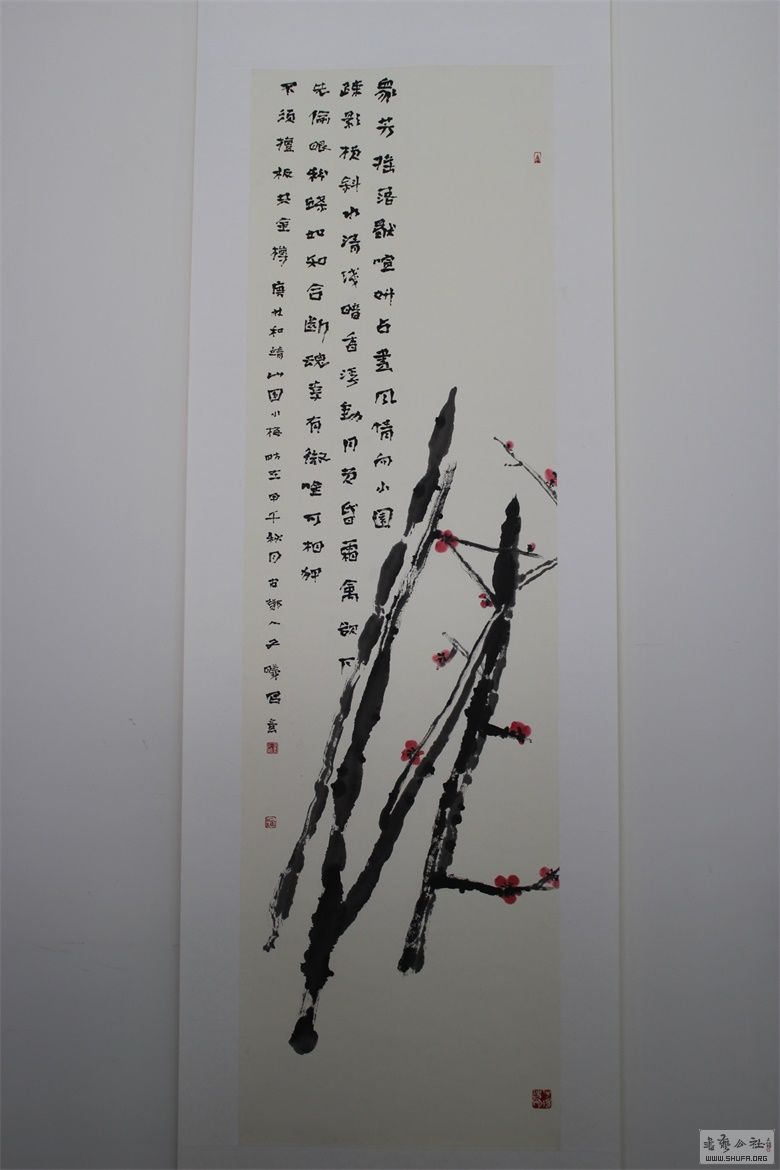 眾芳摇落獨喧妍占盡风情向小園
疎影横斜水清浅暗香浮動月黄昏霜禽欲下
先偷眼粉蝶如知合断魂幸有微吟可相狎
不须檀板共金樽 和靖山園小梅 時在甲午秋月古鄭人
書藝公社
WWW.SHUFA.ORG